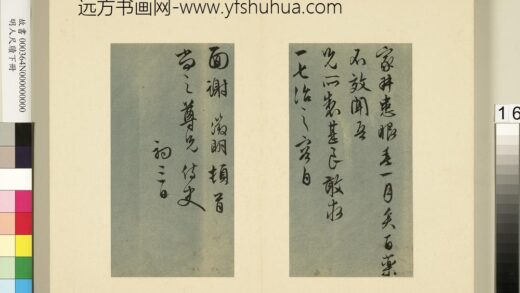 远方书画网-www.yfshuhua.com
故書 000364N000000000
明人尺牘下冊
16
家井患眼二月矣百藥
不效聞吾
兄所製甚良敢求
一七治之容自
面謝 徵明頓首
尚之尊兄侍史
初三日